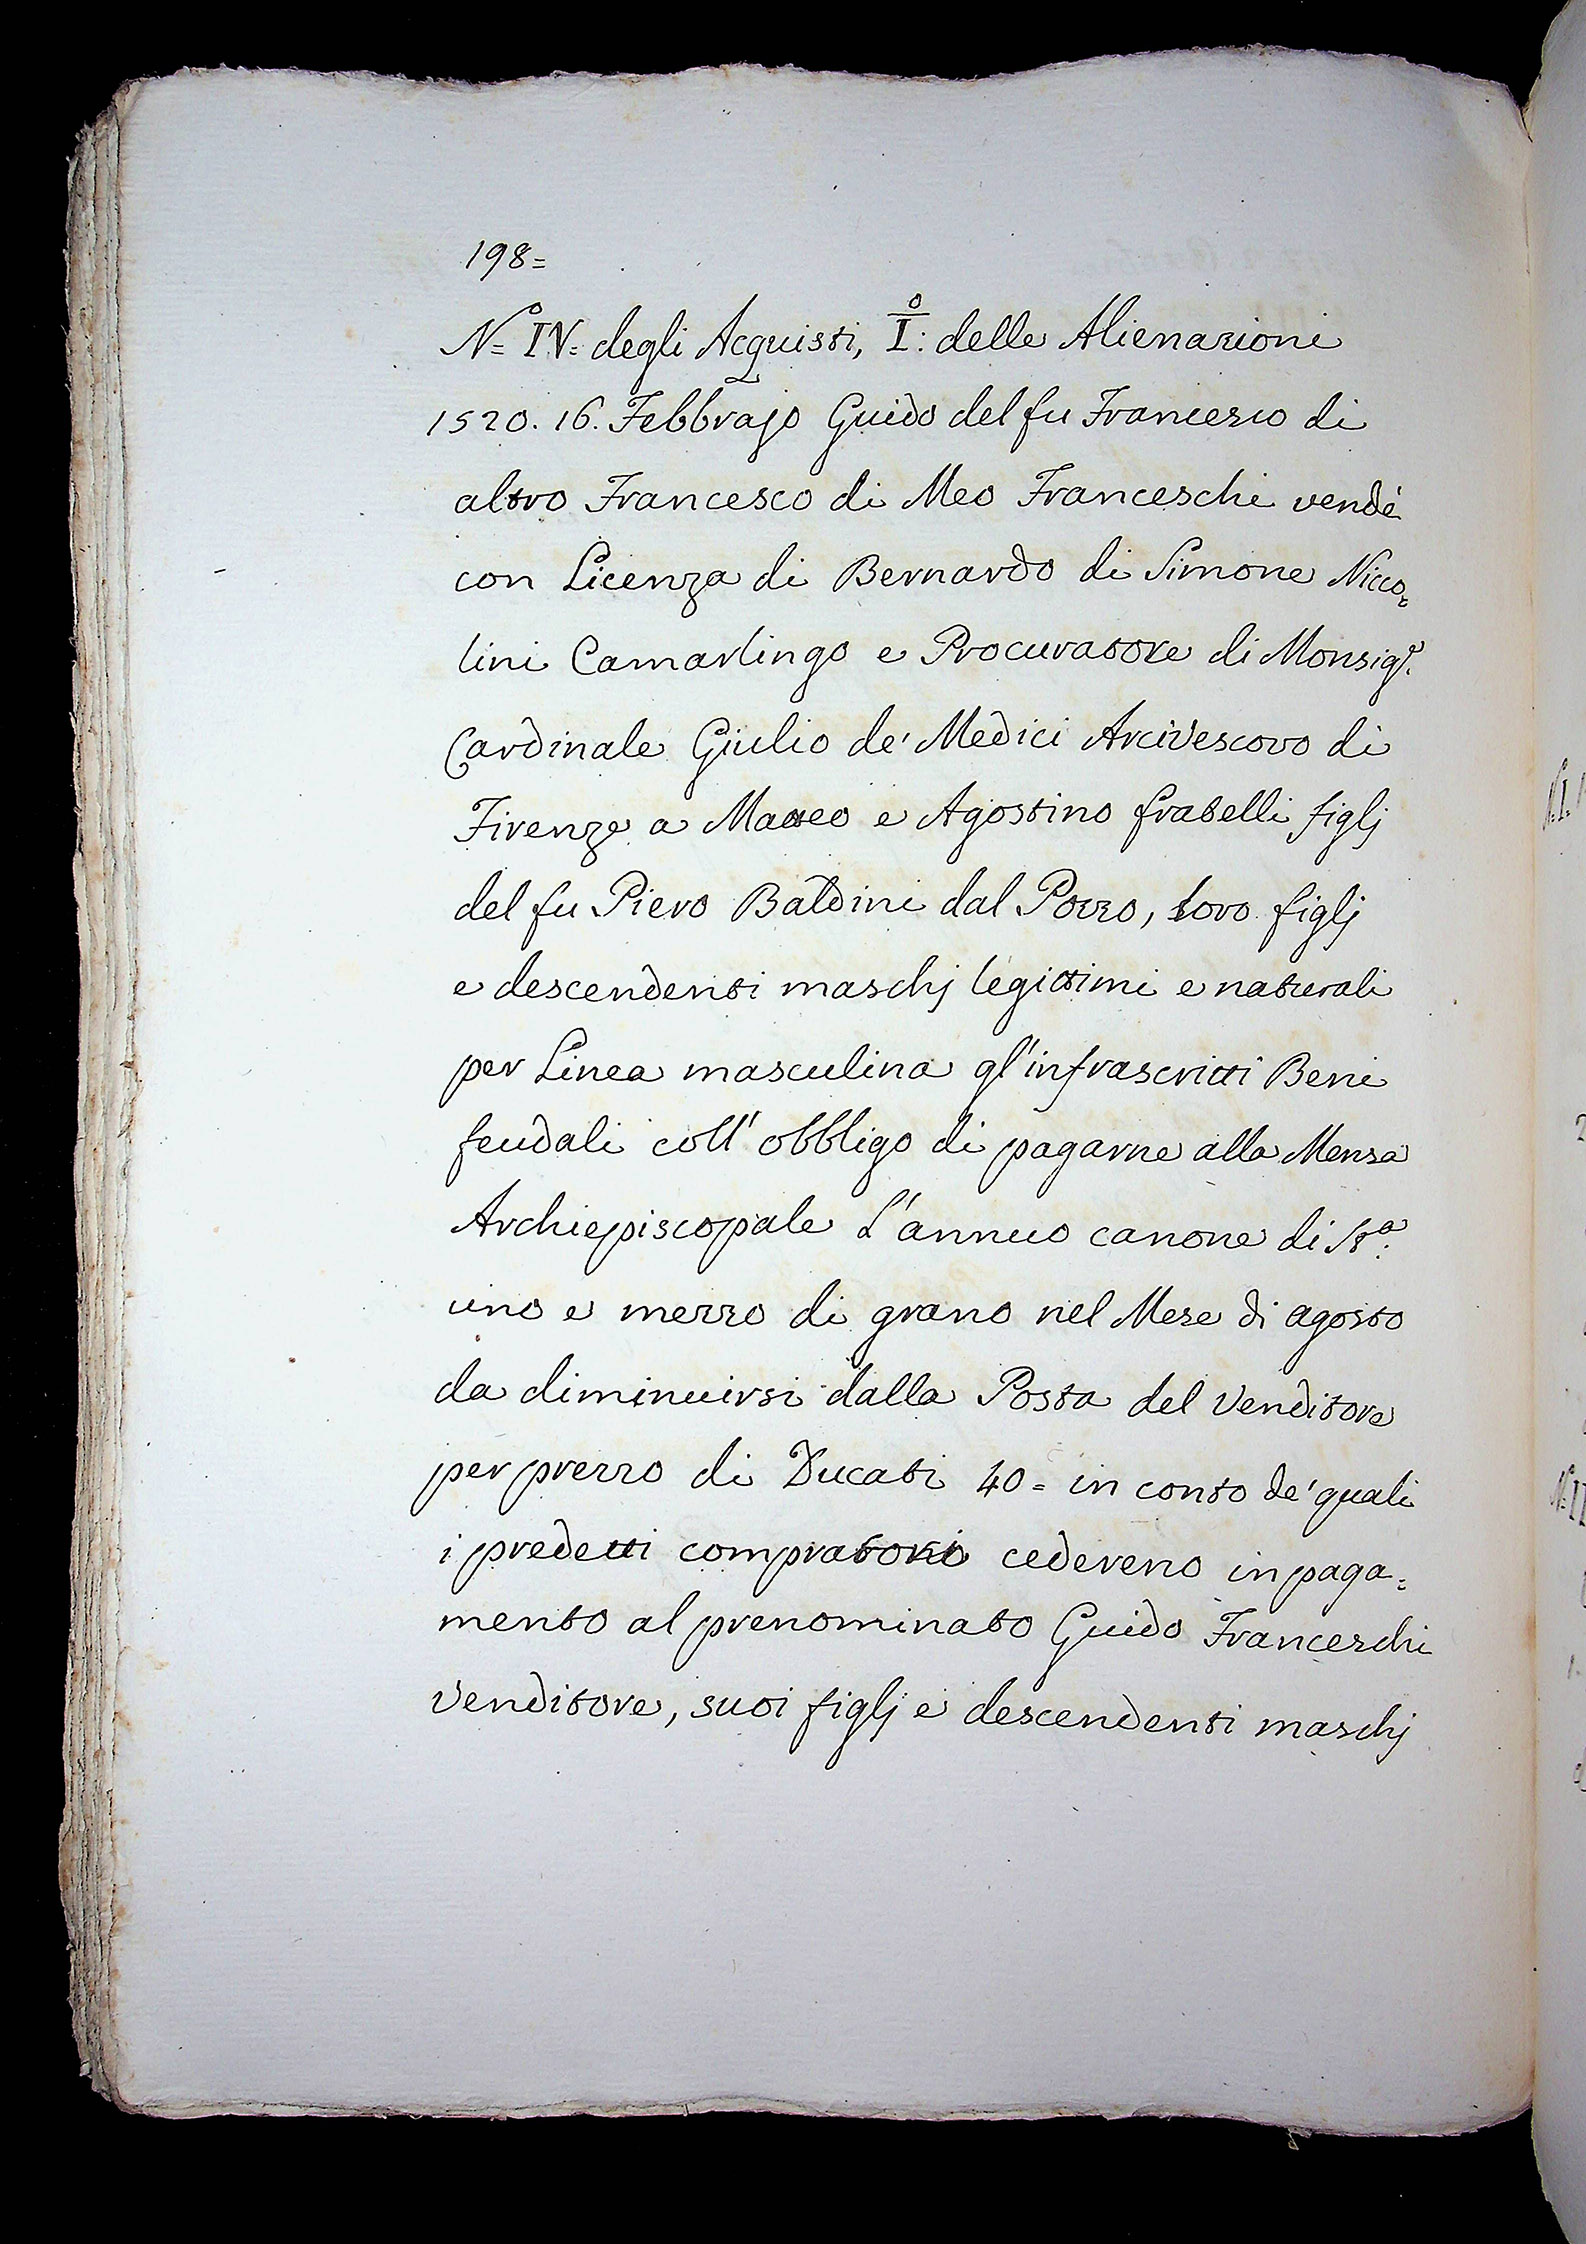 198=
Nº= IV= degli Acquisti, Iº: delle Alienazioni
1520. 16. Febbrajo Guido del fu Francesco di
altro Francesco di Meo Franceschi vendè
con Licenza di Bernardo di Simone Nicco=
lini Camarlingo e Procuratore di Monsigr.
Cardinale Giulio de' Medici Arcivescovo di
Firenze a Matteo e Agostino fratelli figlj
del fu Piero Baldini dal Pozzo, loro figlj
e descendenti maschj legittimi e naturali
per Linea masculina gl'infrascritti Beni
feudali coll'obbligo di pagarne alla Mensa
Archiepiscopale L'annuo canone di Sta:
uno e mezzo di grano nel Mese di agosto
da diminuirsi dalla Posta del Venditore
per prezzo di Ducati 40= in conto de' quali
i predetti compratori cederono in paga=
mento al prenominato Guido Franceschi
Venditore, suoi figlj e descendenti maschj